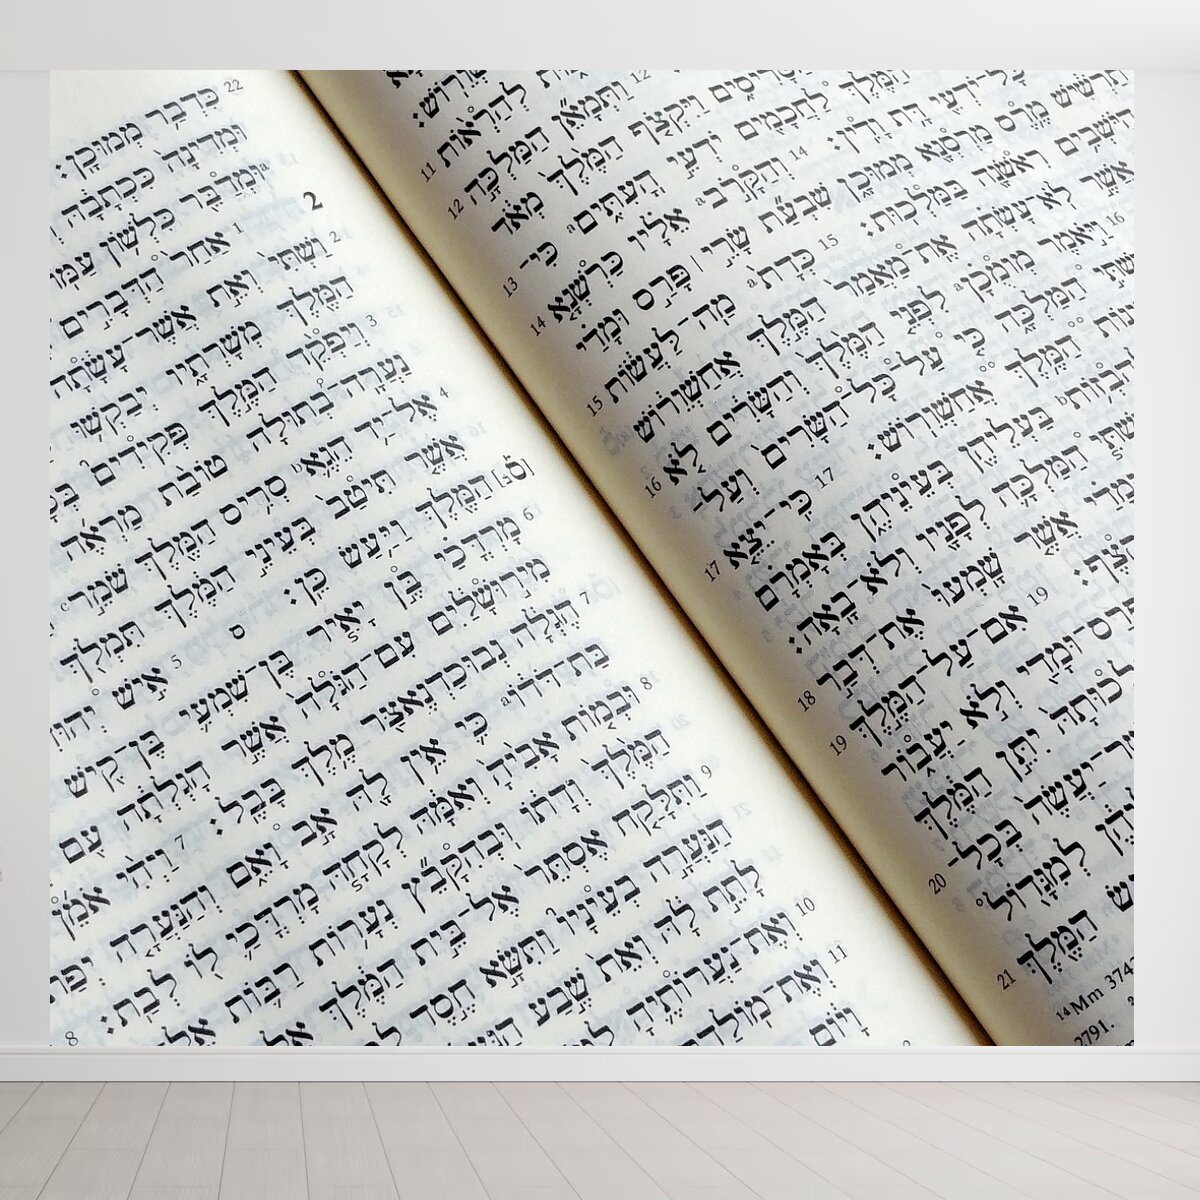 רוֹשׁ׃
11 לְהַרְאוֹת
12 12 וַתְּמָאֵן הַמַּלְכָּה
וַיִּקְצֹף הַמֶּלֶךְ מְאֹד
13 לַחֲכָמִים יֹדְעֵי הָעִתִּים כִּי־
14 כָּל־יֹדְעֵי דָּת וָדִין׃ 14 וְהַקָּרֹב אֵלָיו כַּרְשְׁנָא
תַרְשִׁישׁ מֶרֶס מַרְסְנָא מְמוּכָן שִׁבְעַת שָׂרֵי ׀ פָּרַס וּמָדַי
15 רִאשֹׁנָה בַּמַּלְכוּת׃ 15 כְּדָת מַה־לַּעֲשׂוֹת
אֲשֶׁר לֹא־עָשְׂתָה אֶת־מַאֲמַר הַמֶּלֶךְ אֲחַשְׁוֵרוֹשׁ
16 16 וַיֹּאמֶר מוֹמֻכָן לִפְנֵי הַמֶּלֶךְ וְהַשָּׂרִים לֹא
הַמַּלְכָּה כִּי עַל־כָּל־הַשָּׂרִים וְעַל־
17 הַמֶּלֶךְ אֲחַשְׁוֵרוֹשׁ׃ 17 כִּי־יֵצֵא
בַּעְלֵיהֶן בְּעֵינֵיהֶן בְּאָמְרָם
הַמַּלְכָּה לְפָנָיו וְלֹא־בָאָה׃
18 אֲשֶׁר שָׁמְעוּ אֶת־דְּבַר
19 19 אִם־עַל־הַמֶּלֶךְ
רַס־וּמָדַי וְלֹא יַעֲבוֹר
יִתֵּן הַמֶּלֶךְ
20 יַעֲשֶׂה בְּכָל־
לְמִגָּדוֹל
21 הַמֶּלֶךְ
14 Mm 374
2791.
22 כִּדְבַר מְמוּכָן׃
וּמְדִינָה כִּכְתָבָהּ
וּמְדַבֵּר כִּלְשׁוֹן עַמּוֹ׃
2
1 אַחַר הַדְּבָרִים
2 וַשְׁתִּי וְאֵת אֲשֶׁר־עָשָׂתָה
הַמֶּלֶךְ מְשָׁרְתָיו יְבַקְשׁוּ
3 וְיַפְקֵד הַמֶּלֶךְ פְּקִידִים
נַעֲרָה־בְתוּלָה טוֹבַת מַרְאֶה
4 אֶל־יַד הֵגֶא סְרִיס הַמֶּלֶךְ שֹׁמֵר
אֲשֶׁר תִּיטַב בְּעֵינֵי הַמֶּלֶךְ תִּמְלֹךְ
הַמֶּלֶךְ וַיַּעַשׂ כֵּן׃ ס 5 אִישׁ יְהוּ
6 מָרְדֳּכַי בֶּן יָאִיר בֶּן־שִׁמְעִי בֶּן־קִישׁ
מִירוּשָׁלַיִם עִם־הַגֹּלָה אֲשֶׁר הָגְלְתָה עִם
7 הֶגְלָה נְבוּכַדְנֶאצַּר מֶלֶךְ בָּבֶל׃ 7 וַיְהִי אֹמֵן
בַּת־דֹּדוֹ כִּי אֵין לָהּ אָב וָאֵם וְהַנַּעֲרָה יְפַת
8 וּבְמוֹת אָבִיהָ וְאִמָּהּ לְקָחָהּ מָרְדֳּכַי לוֹ לְבַת׃ 8
הַמֶּלֶךְ וְדָתוֹ וּבְהִקָּבֵץ נְעָרוֹת רַבּוֹת אֶל
9 וַתִּלָּקַח אֶסְתֵּר אֶל־בֵּית הַמֶּלֶךְ אֶל
הַנַּעֲרָה בְעֵינָיו וַתִּשָּׂא חֶסֶד
לָתֵת לָהּ וְאֵת שֶׁבַע
10 וְאֶת־נַעֲרוֹתֶיהָ
11 וְאֶת־מוֹלַדְ
וָיוֹם